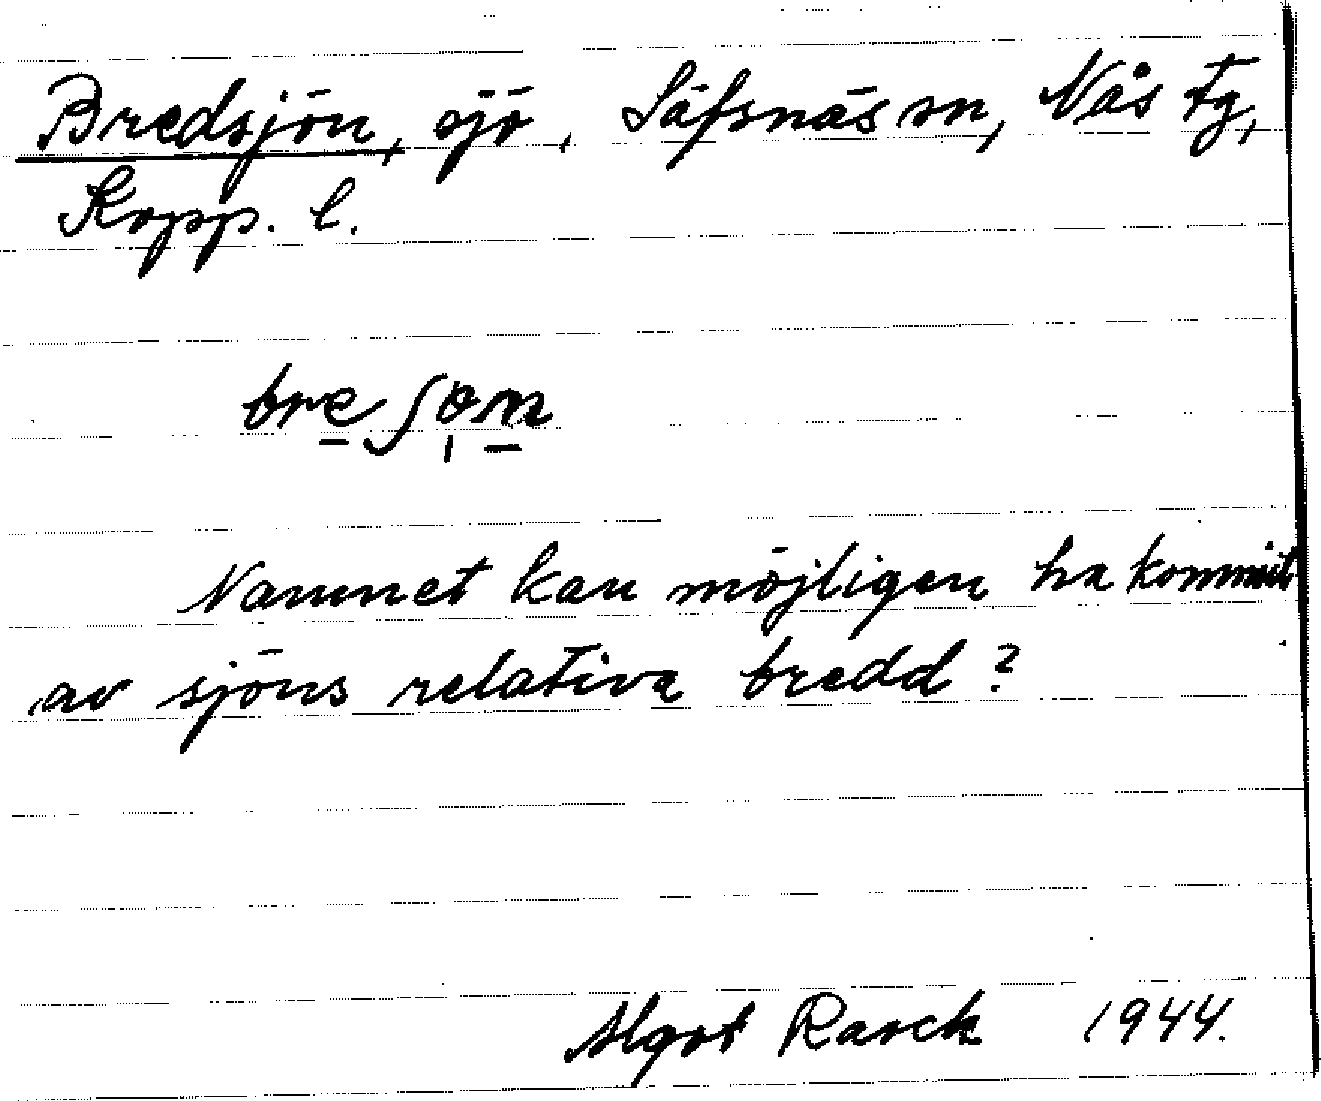 Bredsjön, sjö, Säfsnäs sn, Nås tg,
Kopp. l.
bre̠ʃɵ̩n̠
Namnet kan möjligen ha kommit
av sjöns relativa bredd?
Algot Rasck 1944.